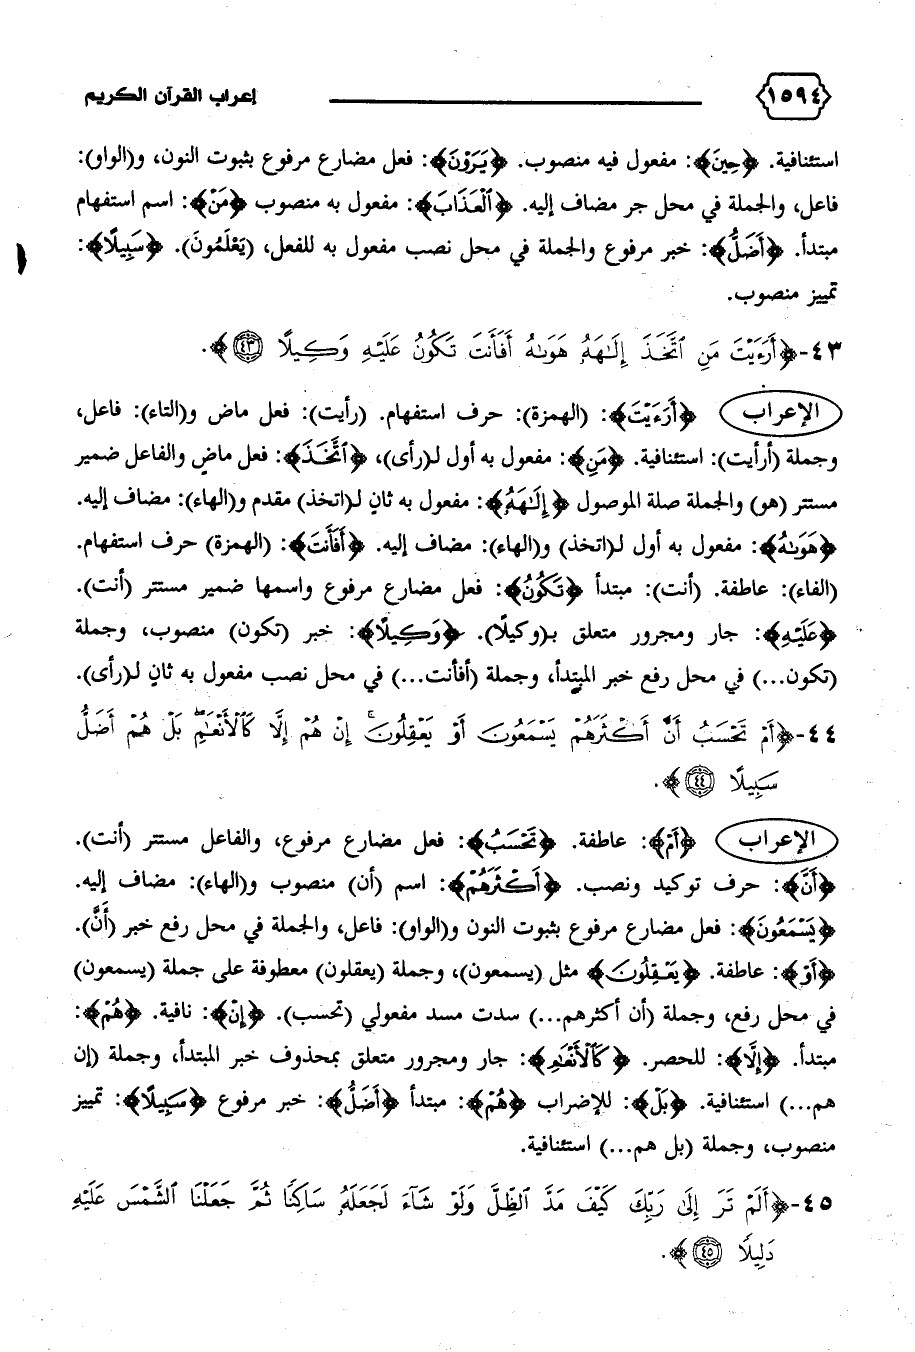 ١٥٩٤ إعراب القرآن الكريم
استئنافية. ﴿حِينَ﴾: مفعول فيه منصوب. ﴿يَرَوْنَ﴾: فعل مضارع مرفوع بثبوت النون، و(الواو):
فاعل، والجملة في محل جر مضاف إليه. ﴿ٱلْعَذَابَ﴾: مفعول به منصوب ﴿مَنْ﴾: اسم استفهام
مبتدأ. ﴿أَضَلُّ﴾: خبر مرفوع والجملة في محل نصب مفعول به للفعل، (يَعْلَمُونَ). ﴿سَبِيلًا﴾:
تمييز منصوب.
٤٣-﴿أَرَءَيْتَ مَنِ ٱتَّخَذَ إِلَـٰهَهُۥ هَوَىٰهُ أَفَأَنتَ تَكُونُ عَلَيْهِ وَكِيلًا ٤٣﴾.
الإعراب ﴿أَرَءَيْتَ﴾: (الهمزة): حرف استفهام. (رأيت): فعل ماض و(التاء): فاعل،
وجملة (أرأيت): استئنافية. ﴿مَنِ﴾: مفعول به أول لـ(رأى)، ﴿ٱتَّخَذَ﴾: فعل ماضٍ والفاعل ضمير
مستتر (هو) والجملة صلة الموصول ﴿إِلَـٰهَهُۥ﴾: مفعول به ثانٍ لـ(اتخذ) مقدم و(الهاء): مضاف إليه.
﴿هَوَىٰهُ﴾: مفعول به أول لـ(اتخذ) و(الهاء): مضاف إليه. ﴿أَفَأَنتَ﴾: (الهمزة) حرف استفهام.
(الفاء): عاطفة. (أنت): مبتدأ ﴿تَكُونُ﴾: فعل مضارع مرفوع واسمها ضمير مستتر (أنت).
﴿عَلَيْهِ﴾: جار ومجرور متعلق بـ(وكيلًا). ﴿وَكِيلًا﴾: خبر (تكون) منصوب، وجملة
(تكون...) في محل رفع خبر المبتدأ، وجملة (أفأنت...) في محل نصب مفعول به ثانٍ لـ(رأى).
٤٤-﴿أَمْ تَحْسَبُ أَنَّ أَكْثَرَهُمْ يَسْمَعُونَ أَوْ يَعْقِلُونَ ۚ إِنْ هُمْ إِلَّا كَٱلْأَنْعَـٰمِ ۖ بَلْ هُمْ أَضَلُّ
سَبِيلًا ٤٤﴾.
الإعراب ﴿أَمْ﴾: عاطفة. ﴿تَحْسَبُ﴾: فعل مضارع مرفوع، والفاعل مستتر (أنت).
﴿أَنَّ﴾: حرف توكيد ونصب. ﴿أَكْثَرَهُمْ﴾: اسم (أن) منصوب و(الهاء): مضاف إليه.
﴿يَسْمَعُونَ﴾: فعل مضارع مرفوع بثبوت النون و(الواو): فاعل، والجملة في محل رفع خبر (أَنَّ).
﴿أَوْ﴾: عاطفة. ﴿يَعْقِلُونَ﴾ مثل (يسمعون)، وجملة (يعقلون) معطوفة على جملة (يسمعون)
في محل رفع، وجملة (أن أكثرهم...) سدت مسد مفعولي (تحسب). ﴿إِنْ﴾: نافية. ﴿هُمْ﴾:
مبتدأ. ﴿إِلَّا﴾: للحصر. ﴿كَٱلْأَنْعَـٰمِ﴾: جار ومجرور متعلق بمحذوف خبر المبتدأ، وجملة (إن
هم...) استئنافية. ﴿بَلْ﴾: للإضراب ﴿هُمْ﴾: مبتدأ ﴿أَضَلُّ﴾: خبر مرفوع ﴿سَبِيلًا﴾: تمييز
منصوب، وجملة (بل هم...) استئنافية.
٤٥-﴿أَلَمْ تَرَ إِلَىٰ رَبِّكَ كَيْفَ مَدَّ ٱلظِّلَّ وَلَوْ شَآءَ لَجَعَلَهُۥ سَاكِنًا ثُمَّ جَعَلْنَا ٱلشَّمْسَ عَلَيْهِ
دَلِيلًا ٤٥﴾.